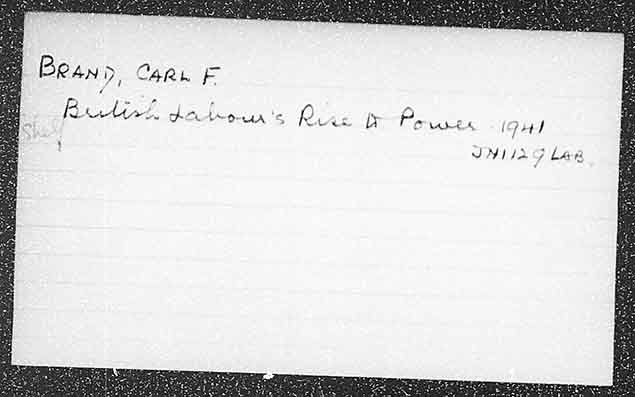 BRAND, CARL F.
British Labour's Rise to Power 1941
Shelf
JN1129 LAB.